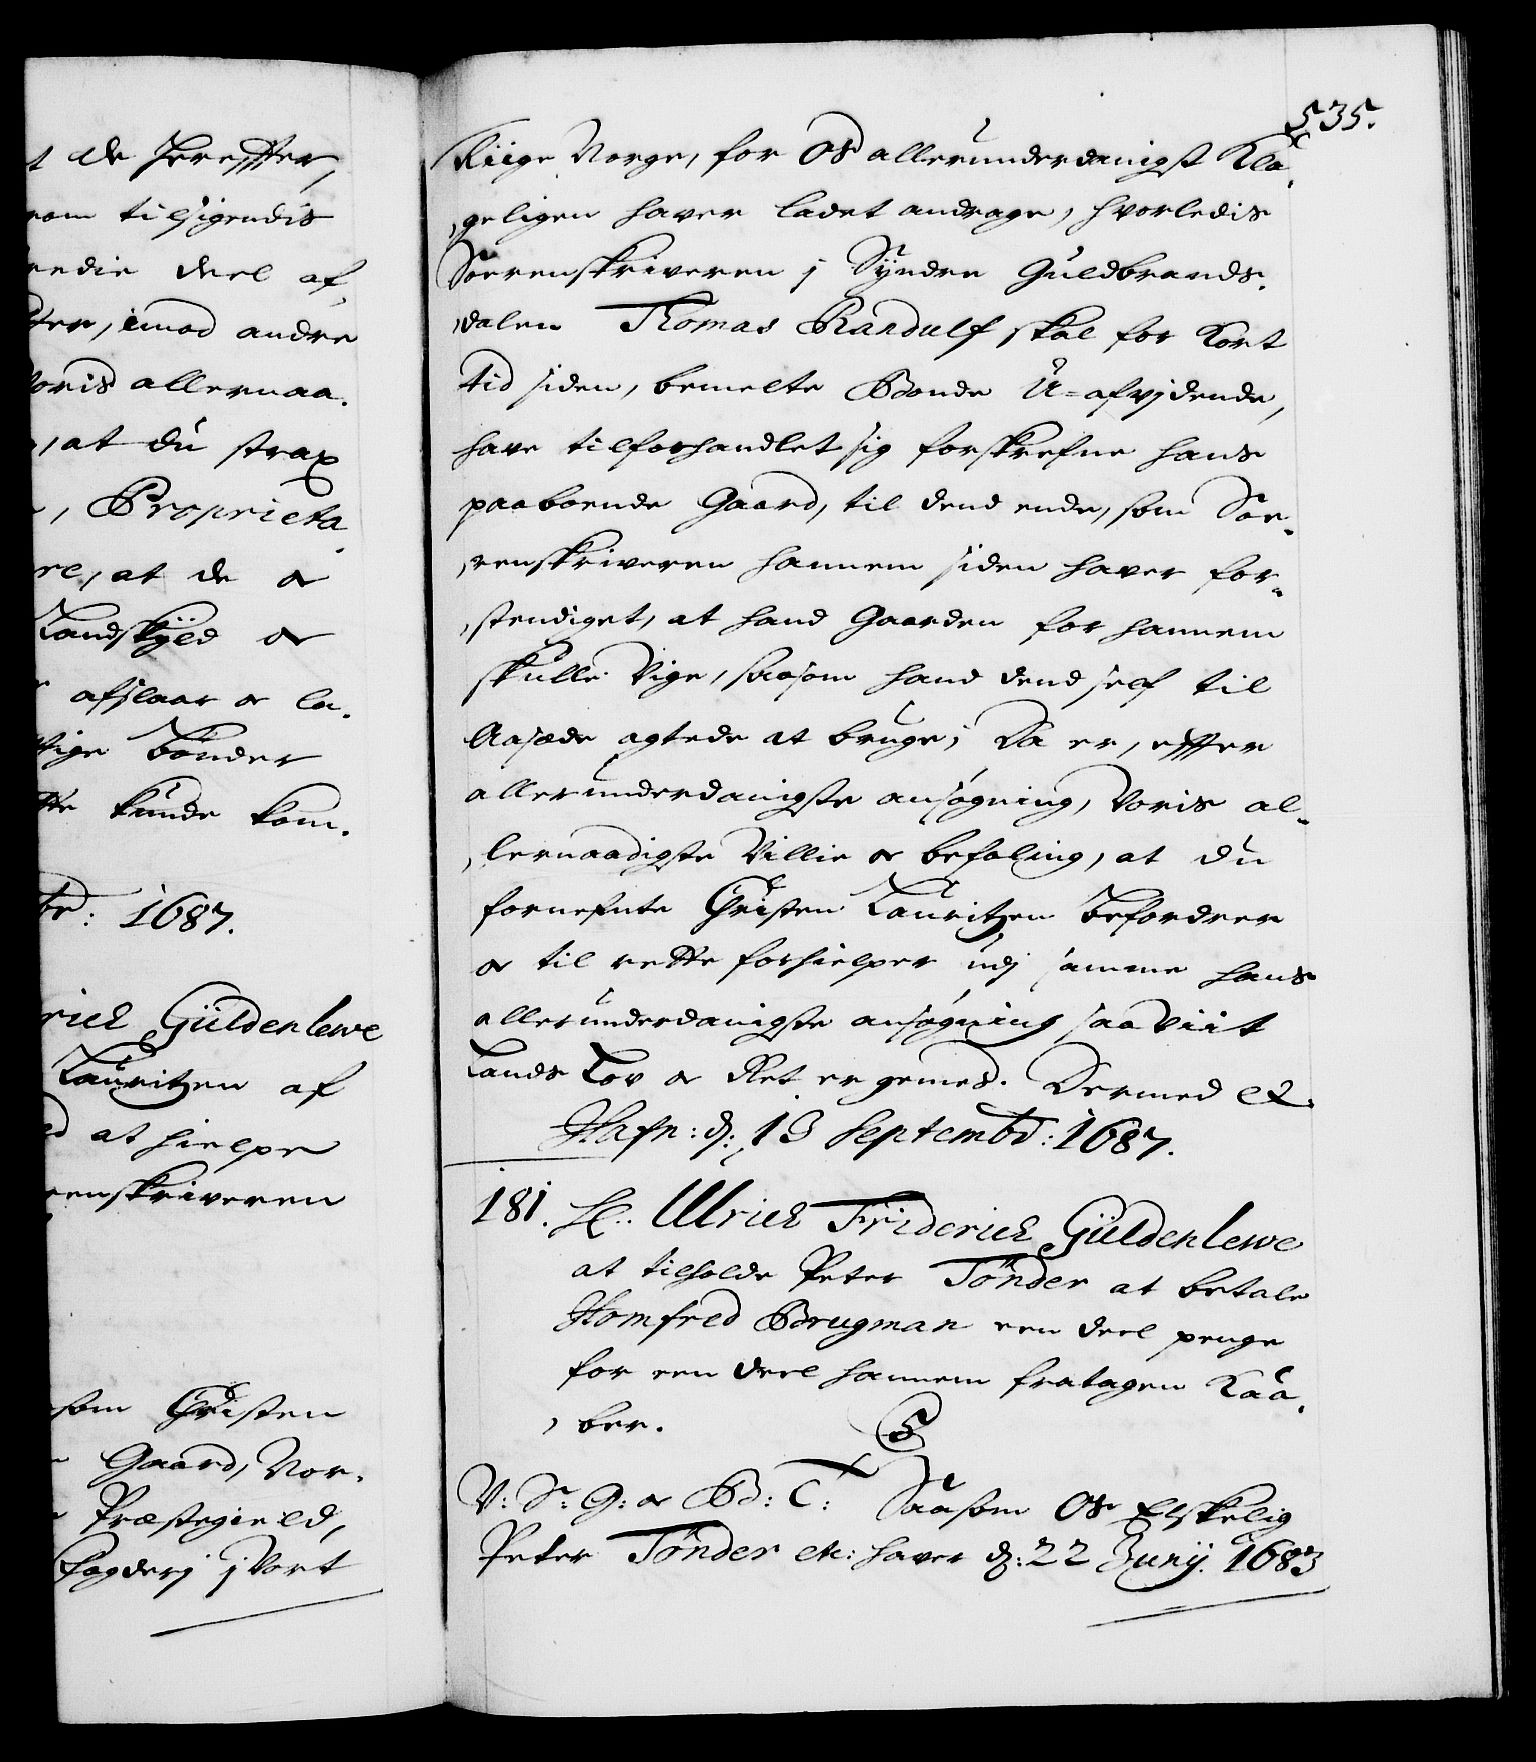 t de Hereffter,
nom tilsigendis
redie deel af,
ter, imod andre
Voris allernaa.
, at du strax
, Proprieta
re, at de or
Landskyld or
afslaar or la.
tige bønder
tte kunde kom.
br: 1687.
rich Güldenlewe
Lauritzen af
ed at hielpe
renskriveren
som Christen
Gaard, Nor.
Præstegield,
fogderj j Vort
535.
Riige Norge, for Os allerunderdanigst Kla,
,geligen haver ladet andrage, hvorledis
Sorenskriveren j Syndre Guldbrands.
,dalen Thomas Randulf skal for kort
tid siden, bemelte Bonde U=afvidende,
have tilforhandlet sig forskrefne hans
paaboende Gaard, til dend ende, som Sor-
,renskriveren hannem siden haver for-
,stendiget, at hand Gaarden for hannem
skulle Vige, saasom hand dend self til
Aasæde agtede at bruge; Da er, effter
allerunderdanigste ansøgning, Voris al-
,lernaadigste Villie or befaling, at du
fornefnte Christen Lauritzen befordrer
or til rette forhielper udj samme hans
allerunderdanigste ansøgning saa Viit
Lands Lov or Ret er gemes. Dermed etc.
Hafn: d: 13 Septembr: 1687.
181. H: Ulrich Friderich Güldenlewe
at tilholde Peter Tønder at betale
Homfred Brugman een deel penge
for een deel hannem fratagen Kaa,
, ber.
V: S: G: or Bd: C: Saasom Os Elskelig
Peter Tønder etc: haver d: 22 Junij. 1683